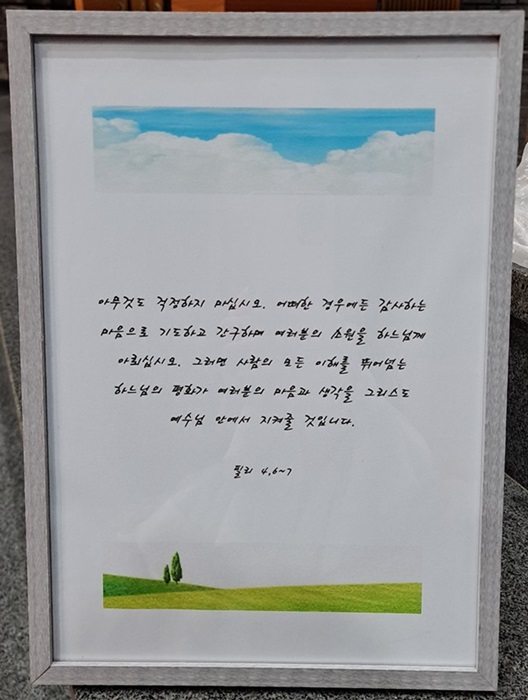 아무것도 걱정하지 마십시오. 어떠한 경우에든 감사하는
마음으로 기도하고 간구하며 여러분의 소원을 하느님께
아뢰십시오. 그러면 사람의 모든 이해를 뛰어넘는
하느님의 평화가 여러분의 마음과 생각을 그리스도
예수님 안에서 지켜줄 것입니다.
필리 4,6~7